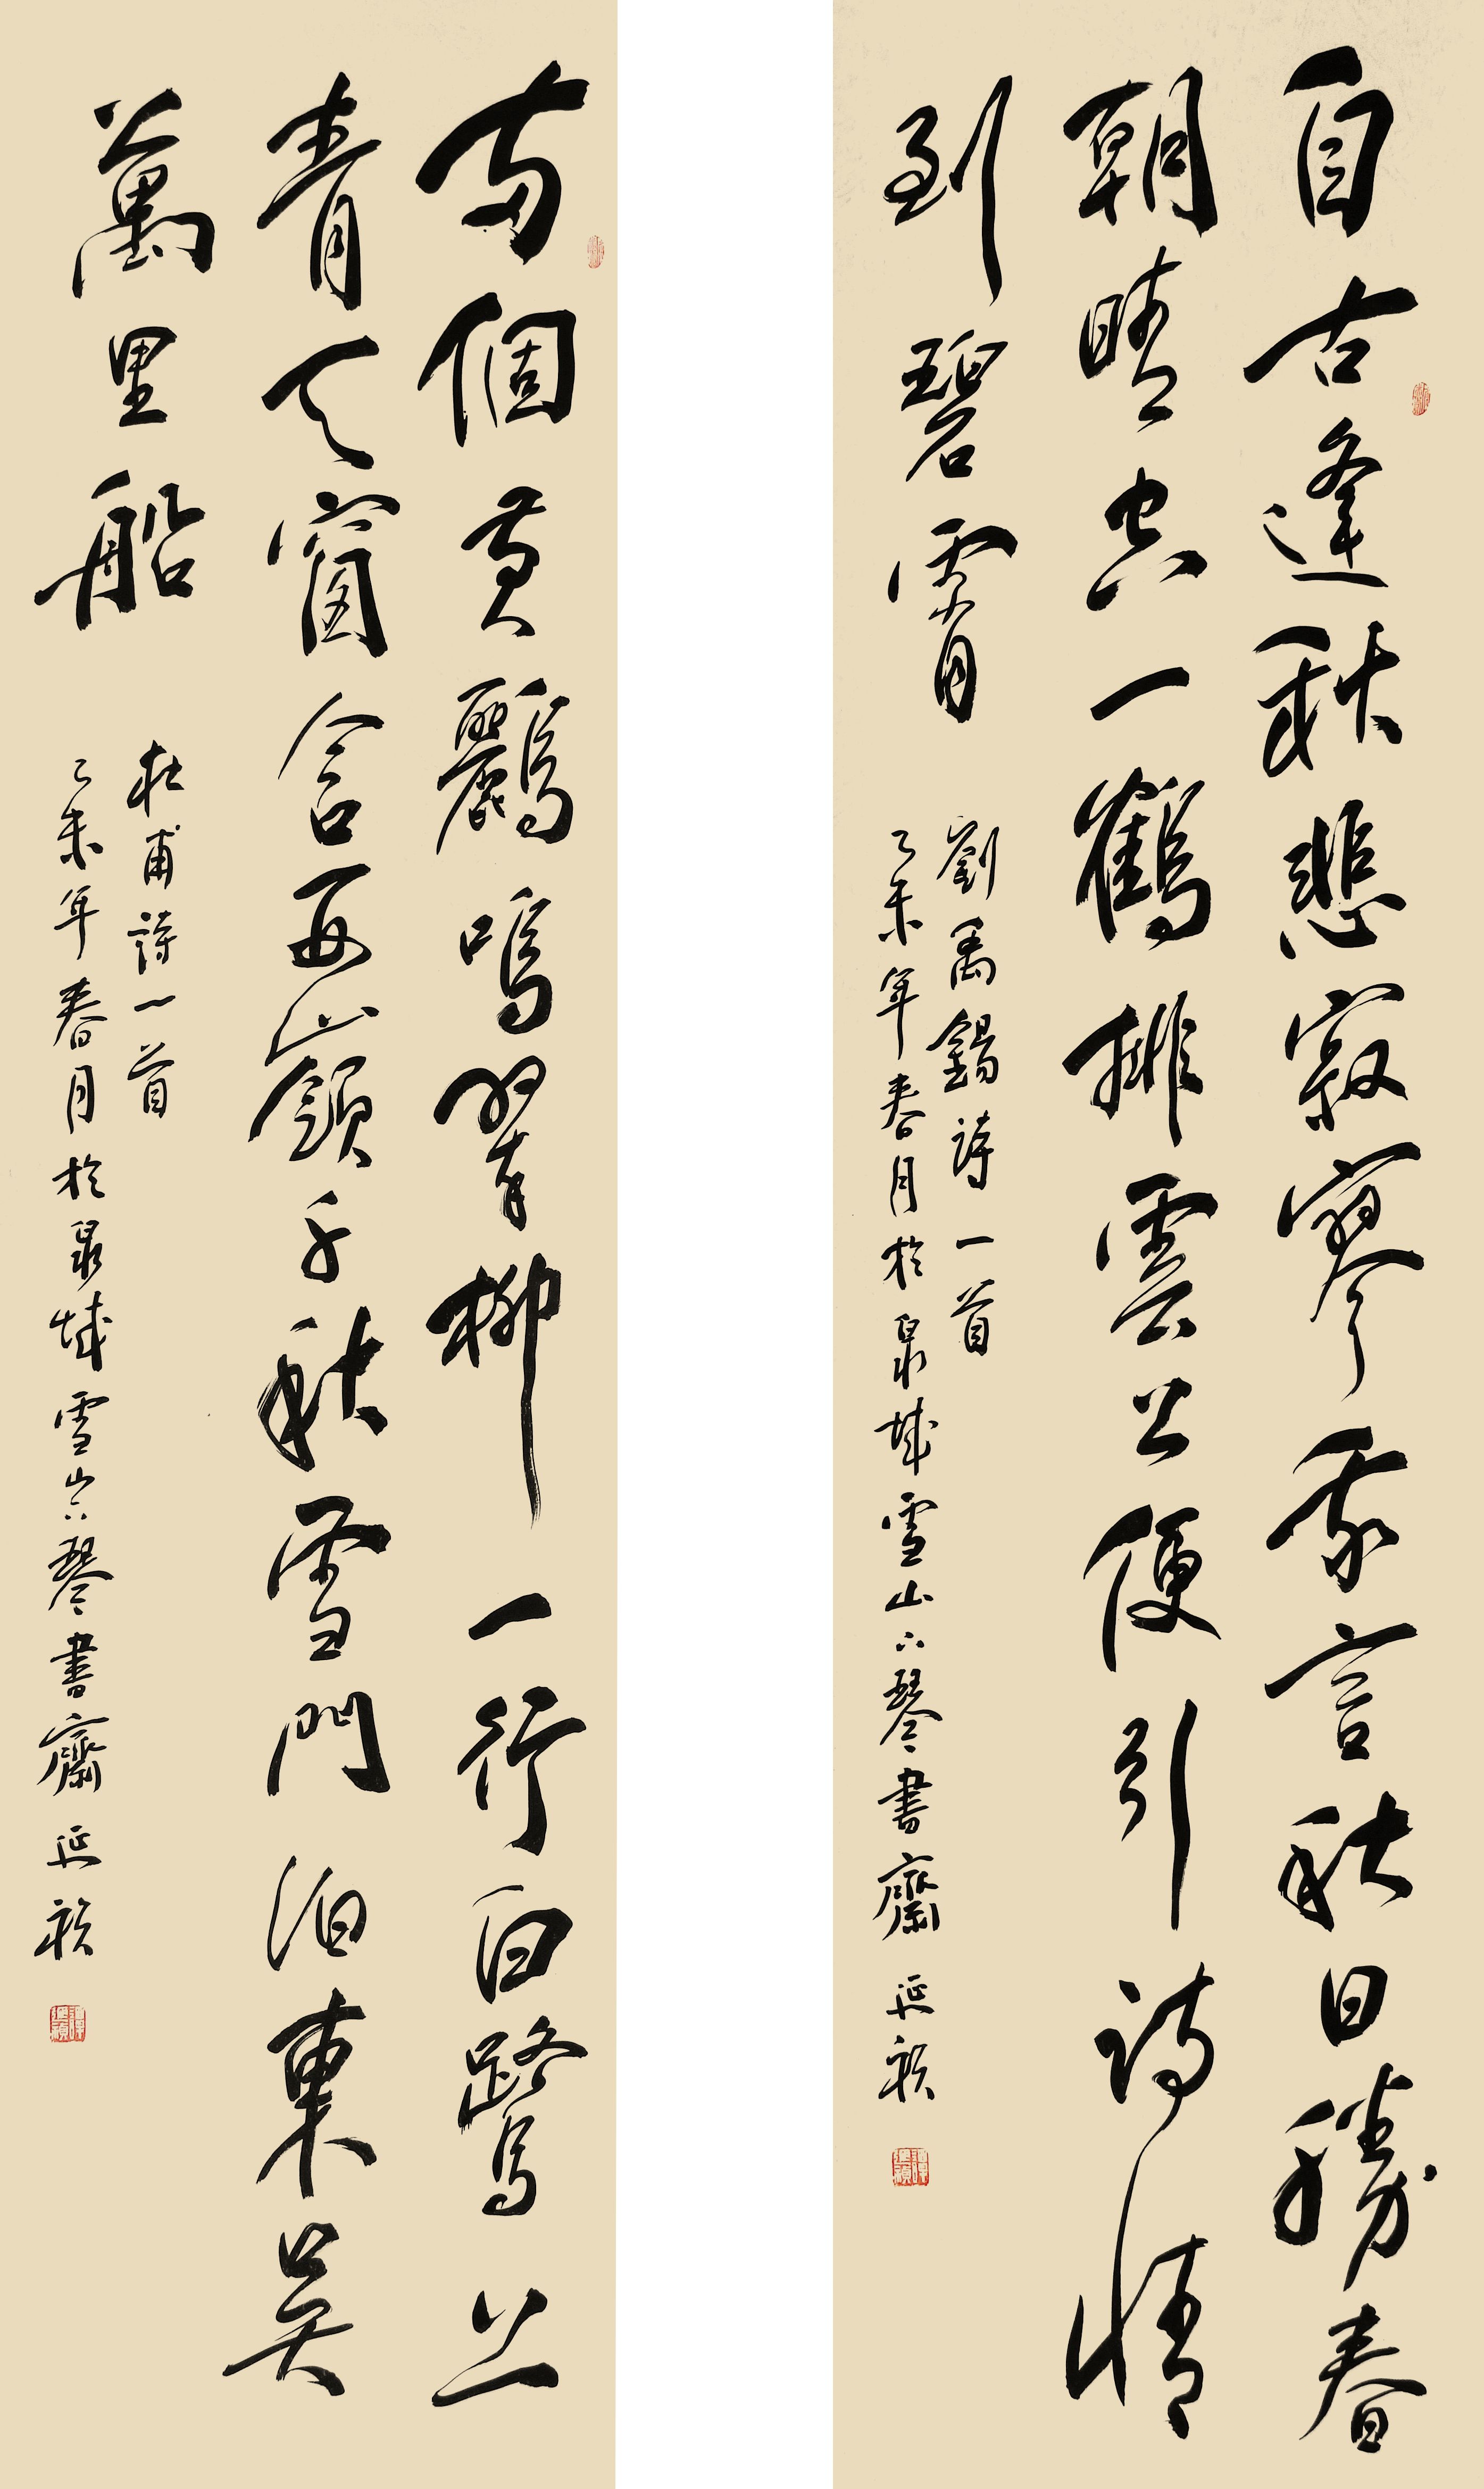 自古逢秋悲寂寥我言秋日勝春
朝晴空一鶴排雲上便引詩情
到碧霄
劉禹錫詩一首
乙未年春月於泉城雪山六琴書齋 延禎
兩個黃鸝鳴翠柳一行白鷺上
青天窗含西山嶺千秋雪門泊東吳
萬里船
杜甫詩一首
乙未年春月於泉城雪山六琴書齋 延禎